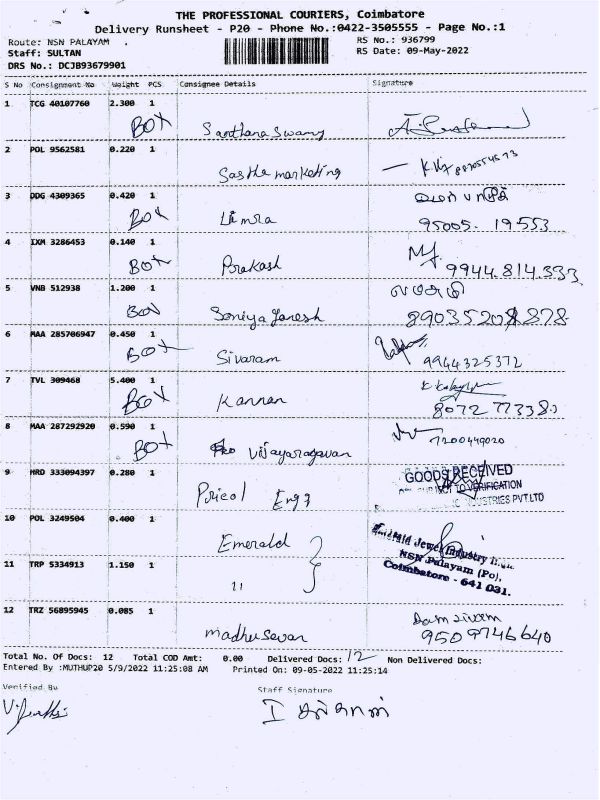 THE PROFESSIONAL COURIERS, Coimbatore
Delivery Runsheet - P20 - Phone No.:0422-3505555 - Page No.:1
Route: NSN PALAYAM .
RS No.: 936799
Staff: SULTAN
RS Date: 09-May-2022
DRS No.: DCJB93679901
S No Consignment No Weight PCS Consignee Details Signature
1 TCG 40107760 2.300 1
BOX Santhana Swamy
2 POL 9562581 0.220 1
Sastha marketing
3 DDG 4309365 0.420 1
BOX Limra 95005. 19553
4 IXM 3286453 0.140 1
BOX Prakash 9944.814.333
5 VNB 512938 1.200 1
BOX Soniya Ganesh
6 MAA 285706947 0.450 1
BOX Sivaram 9944325372
7 TVL 309468 5.400 1
BOX Kannan
8 MAA 287292920 0.590 1
BOX Vijayaragavan 7200449020
9 HRD 333094397 0.280 1
Pricol Engg
GOODS RECEIVED
SUBJECT TO VERIFICATION
INDUSTRIES PVT.LTD
10 POL 3249504 0.400 1
Emerald
Emerald Jewel Industry
NSN Palayam (Po),
Coimbatore - 641 031.
11 TRP 5334913 1.150 1
11
12 TRZ 56895945 0.085 1
madhusevan 9509746640
Total No. Of Docs: 12 Total COD Amt: 0.00 Delivered Docs: 12 Non Delivered Docs:
Entered By :MUTHUP20 5/9/2022 11:25:08 AM Printed On: 09-05-2022 11:25:14
Verified By Staff Signature